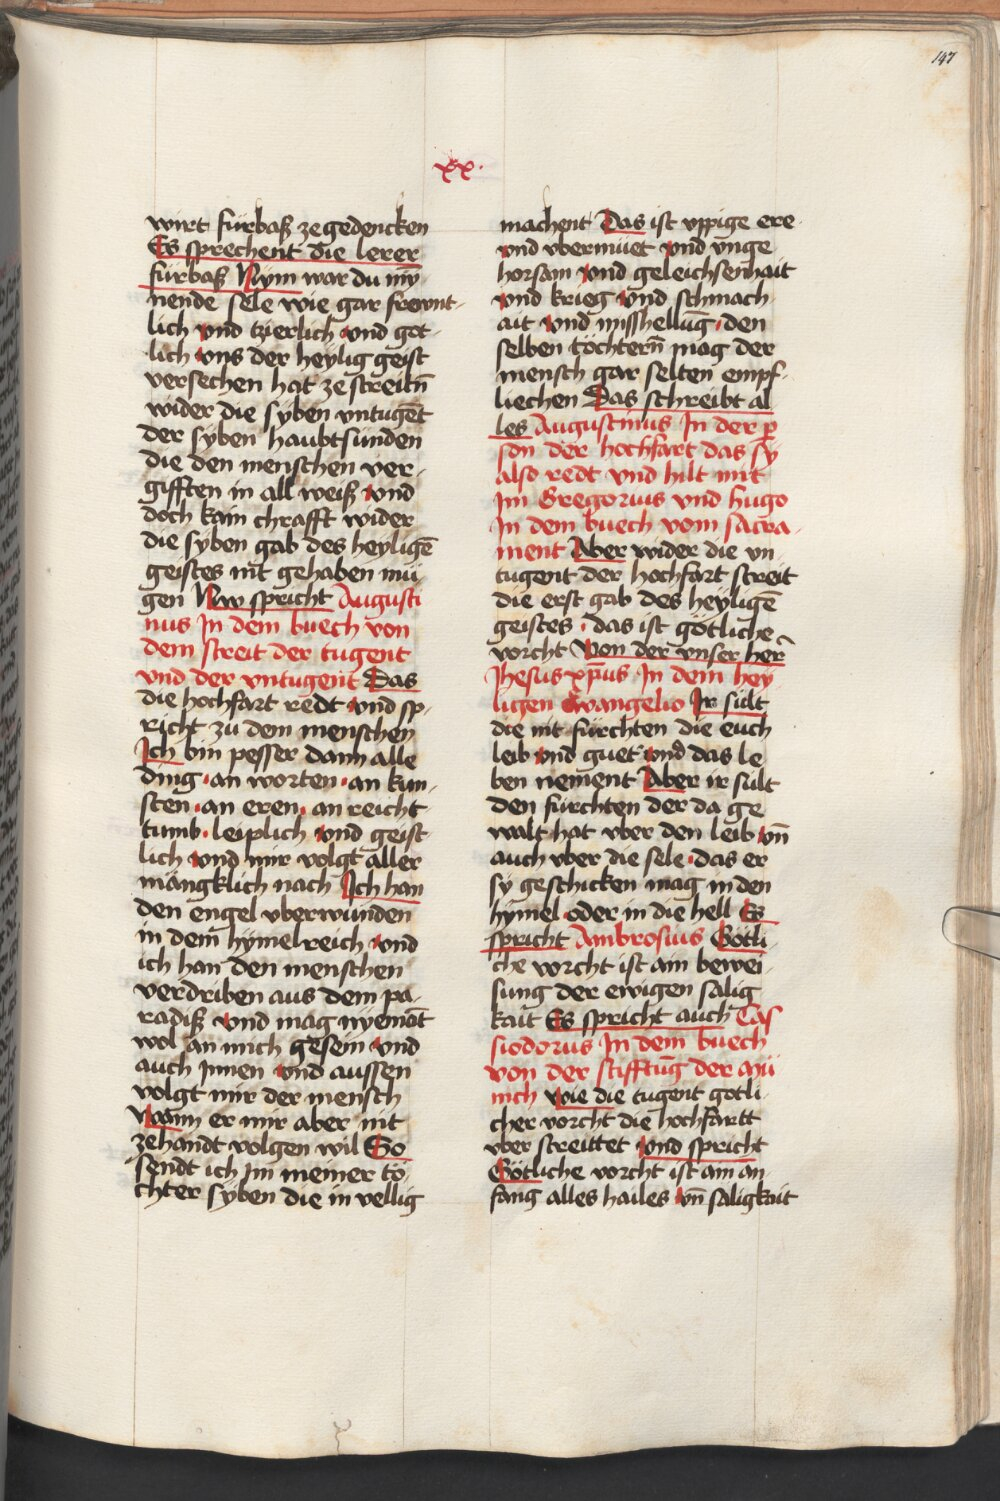 147
xx.
wirt fürbaß ze gedencken
Es sprechent die lerer
fürbaß Nym war du my̅
nende sele wie gar frewnt-
lich vnd tzierlich vnd got-
lich vns der heylig geist
versechen hat ze streitn̅
wider die syben vntuge̅t
der syben haubtsünden
die den menschen ver-
gifften in all weiß vnd
doch kain chrafft wider
die syben gab des heylige̅
geistes nit gehaben mü-
gen Nw spricht Augusti
nus In dem buech von
dem streit der tugent
vnd der vntugent Das
die hochfart redt vnd sp-
richt zu dem menschen
Ich bin pesser dann alle
ding · an worten · an kun-
sten · an eren · an reicht
tumb · leiplich vnd geist-
lich vnd mir volgt aller
mängklich nach Ich han
den engel vberwunden
in dem hymelreich vnd
ich han den menschen
verdriben aus dem pa-
radiß vnd mag nyema̅t
wol an mich gesein vnd
auch Innen vnd aussen
volgt mir der mensch
Wann er mir aber nit
zehandt volgen wil So
sendt ich im meiner tö
chter syben die in vellig
machent Das ist vppige ere
vnd vbermüet vnd vnge
horsam vnd geleichsenhait
vnd krieg vnd schmach
ait vnd misshellu̅g · den
selben töchtern̅ mag der
mensch gar selten empf-
liechen Das schreibt al
les Augustinus In der p̲
son der hochfart das sy
also redt vnd hilt mit
im Gregorius vnd hugo
In dem buech vom sacra-
ment Aber wider die vn-
tugent der hochfart streit
die erst gab des heylige̅
geistes · das ist götliche
vorcht Von der vnser her̅
Jhesus xp̅us In dem hey
ligen Ewangelio Ir sült
die nit fürchten die euch
leib vnd guet vnd das le
ben nement Aber ir sült
den fürchten der da ge
walt hat vber den leib vn̅
auch vber die sele · das er
sy geschicken mag in den
hymel oder in die hell Es
spricht Ambrosius Götli-
che vorcht ist ain bewei-
sung der ewigen sälig
kait Es spricht auch Cas
siodorus In dem buech
von der stifftu̅g der mü
nich wie die tugent götli-
cher vorcht die hochfartt
vber streittet vnd spricht
Götliche vorcht ist ain an-
fang alles hailes vn̅ saligkait